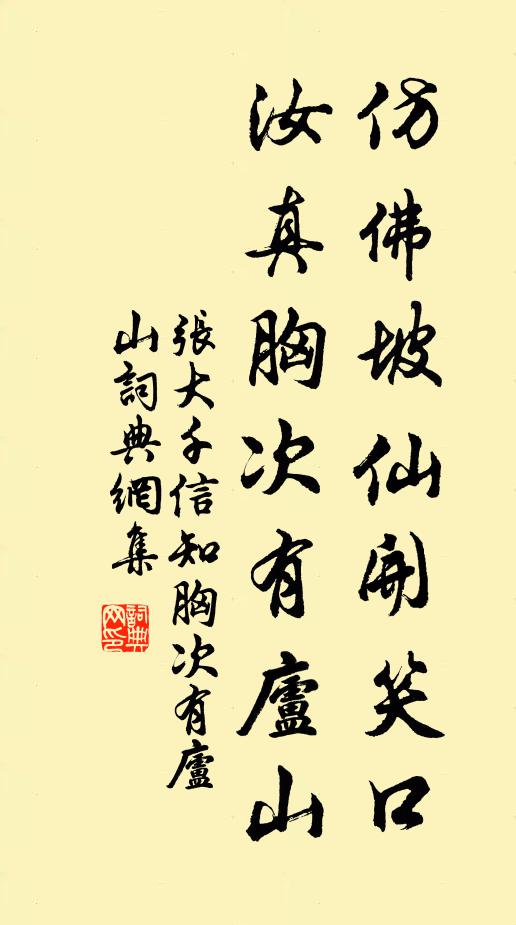 仿佛坡仙開笑口
汝真胸次有廬山
張大千信知胸次有廬
山詞典網集
詞典
網印